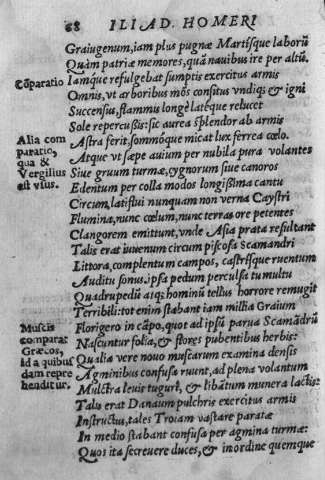 68 ILIAD. HOMERI
Graiugenum, iam plus pugnæ Martisque laborū
Quàm patriæ memores, quā nauibus ire per altū.
Cōparatio
Iamque refulgebat sumptis exercitus armis
Omnis, vt arboribus mōs consitus vndiq; & igni
Succensus, flammis longè latéque relucet
Sole repercussis: sic aurea splendor ab armis
Alia comparatio, qua & Vergilius est vsus.
Astra ferit, summóque micat lux ferrea cœlo.
Atque vt sæpe auium per nubila pura volantes
Siue gruum turmæ, cygnorum siue canoros
Edentum per colla modos longissima cantu
Circum, latiflui nunquam non verna Caystri
Flumina, nunc cœlum, nunc terras ore petentes
Clangorem emittunt, vnde Asia prata resultant
Talis erat iuuenum circum piscosa Scamandri
Littora, complentum campos, castrisque ruentum
Auditu sonus, ipsa pedum perculsa tumultu
Quadrupedū atq; hominū tellus horrore remugit
Terribili: tot enim stabant iam millia Graium
Muscis comparat Græcos, id a quibusdam reprehenditur.
Florigero in cāpo, quot ad ipsū parua Scamādrū
Nascuntur folia, & flores pubentibus herbis:
Qualia vere nouo muscarum examina densis
Agminibus confusa ruunt, ad plena volantum
Mulctra leuis tugurî, & libātum munera lactis:
Talis erat Danaum pulchris exercitus armis
Instructus, tales Troiam vastare paratæ
In medio stabant confusa per agmina turmæ:
Quos ita secreuere duces, & in ordine quemque